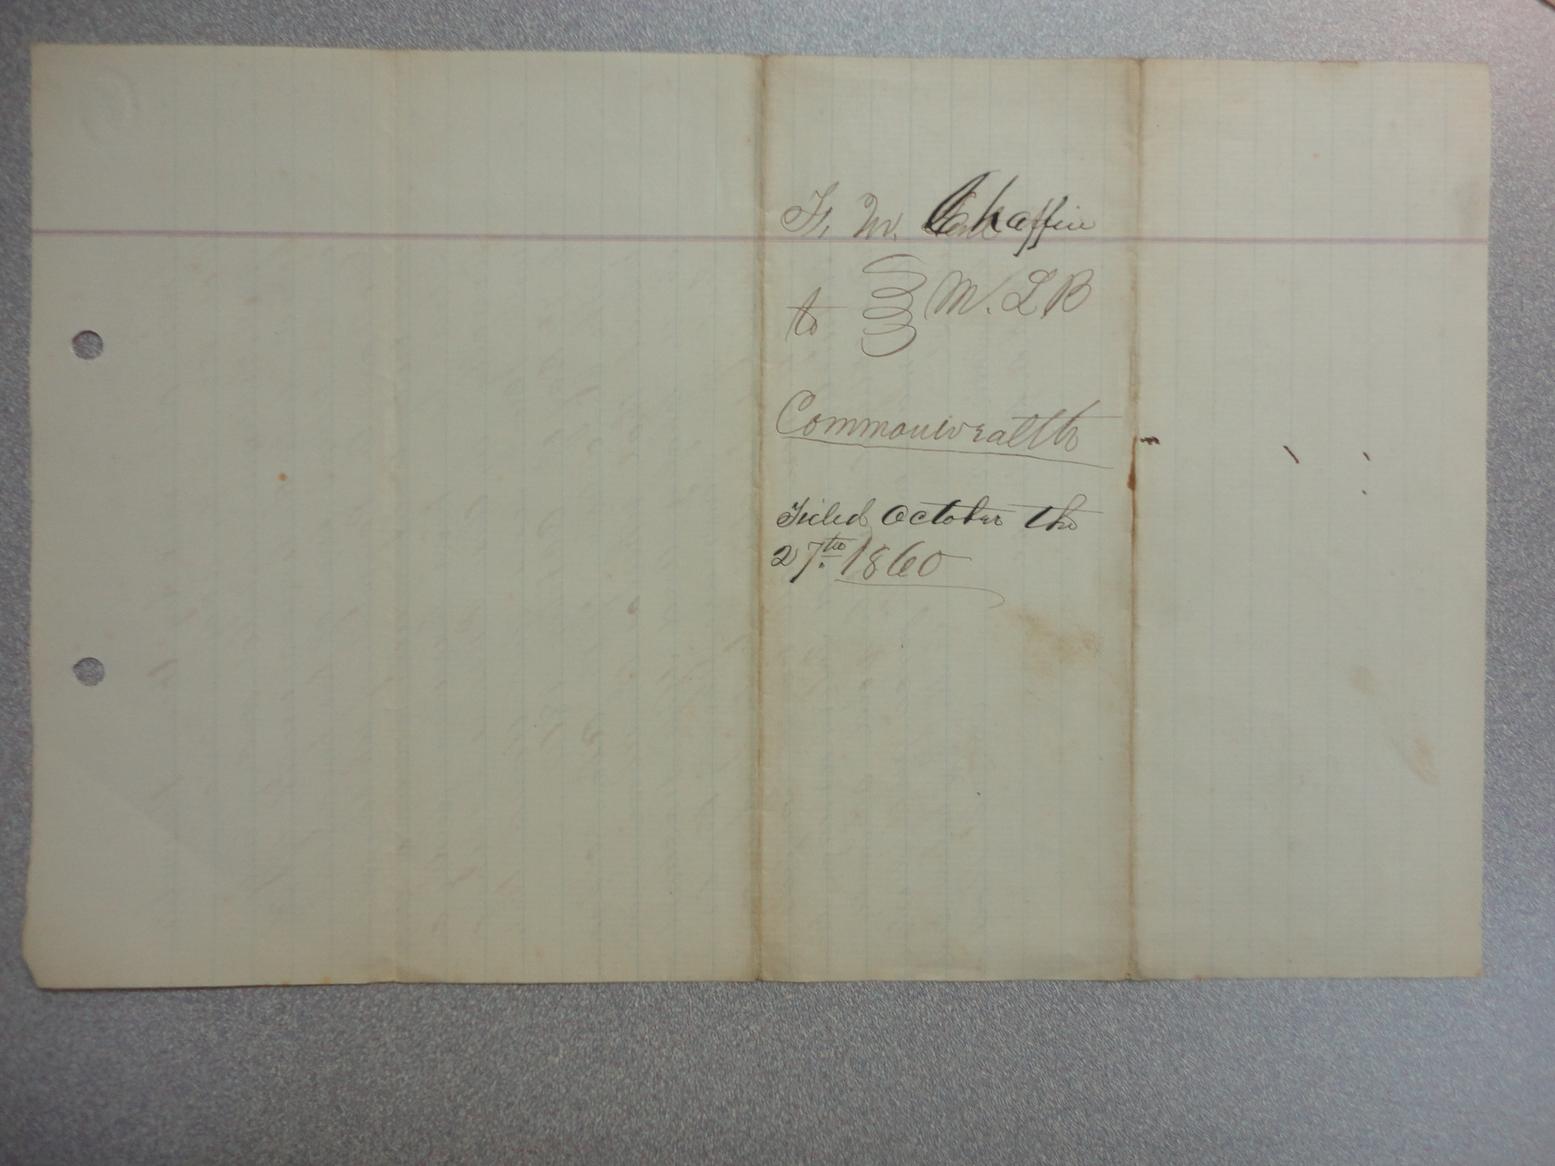 F. W. Chaffin
to } M. L B
Commonwealth
Filed October the
27th. 1860